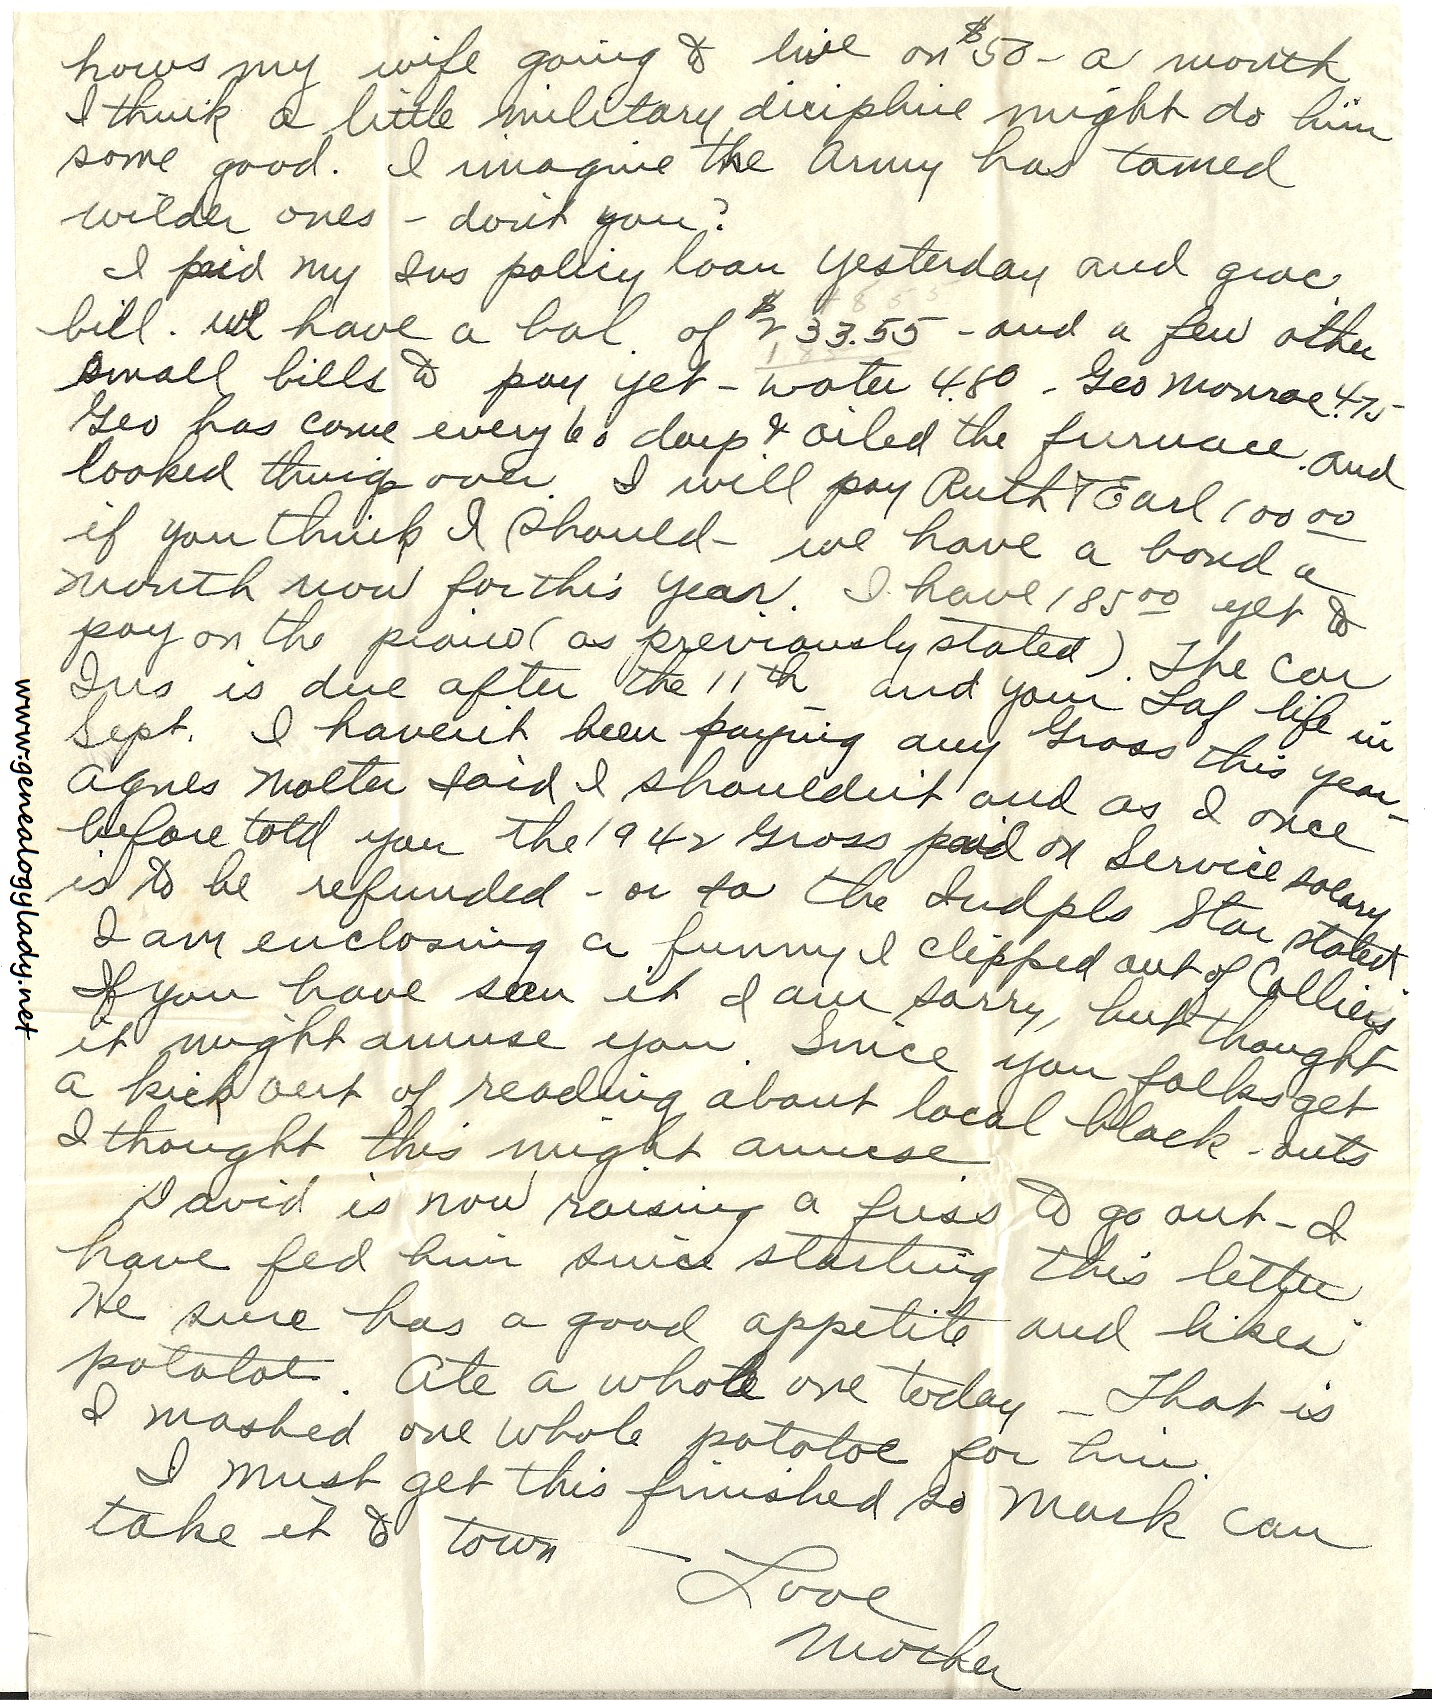 hows my wife going to live on $50 - a month
I think a little military dicipline might do him
some good. I imagine the Army has tamed
wilder ones - don't you?
I paid my Ins policy loan yesterday and groc.
bill. We have a bal. of $233.55 - and a few other
small bills to pay yet - water 4.80 - Geo Monroe 4.75
Geo has come every 60 days & oiled the furnace and
looked things over. I will pay Ruth & Earl 100 00
if you think I should - we have a bond a
month now for this year. I have 185 00 yet to
pay on the piano (as previously stated). The car
Ins is due after the 11th and your Laf life in
Sept. I haven't been paying any Gross this year -
Agnes Molter said I shouldn't and as I once
before told you the 1942 Gross paid on Service salary
is to be refunded - or so the Indpls Star stated
I am enclosing a funny I clipped out of Collier's
If you have seen it I am sorry, but thought
it might amuse you. Since you folks get
a kick out of reading about local black-outs
I thought this might amuse
David is now raising a fuss to go out - I
have fed him since starting this letter
He sure has a good appetite and likes
potatoe. Ate a whole one today - That is
I mashed one whole potatoe for him.
I must get this finished so Mark can
take it to town -
Love
Mother
www.genealogylady.net